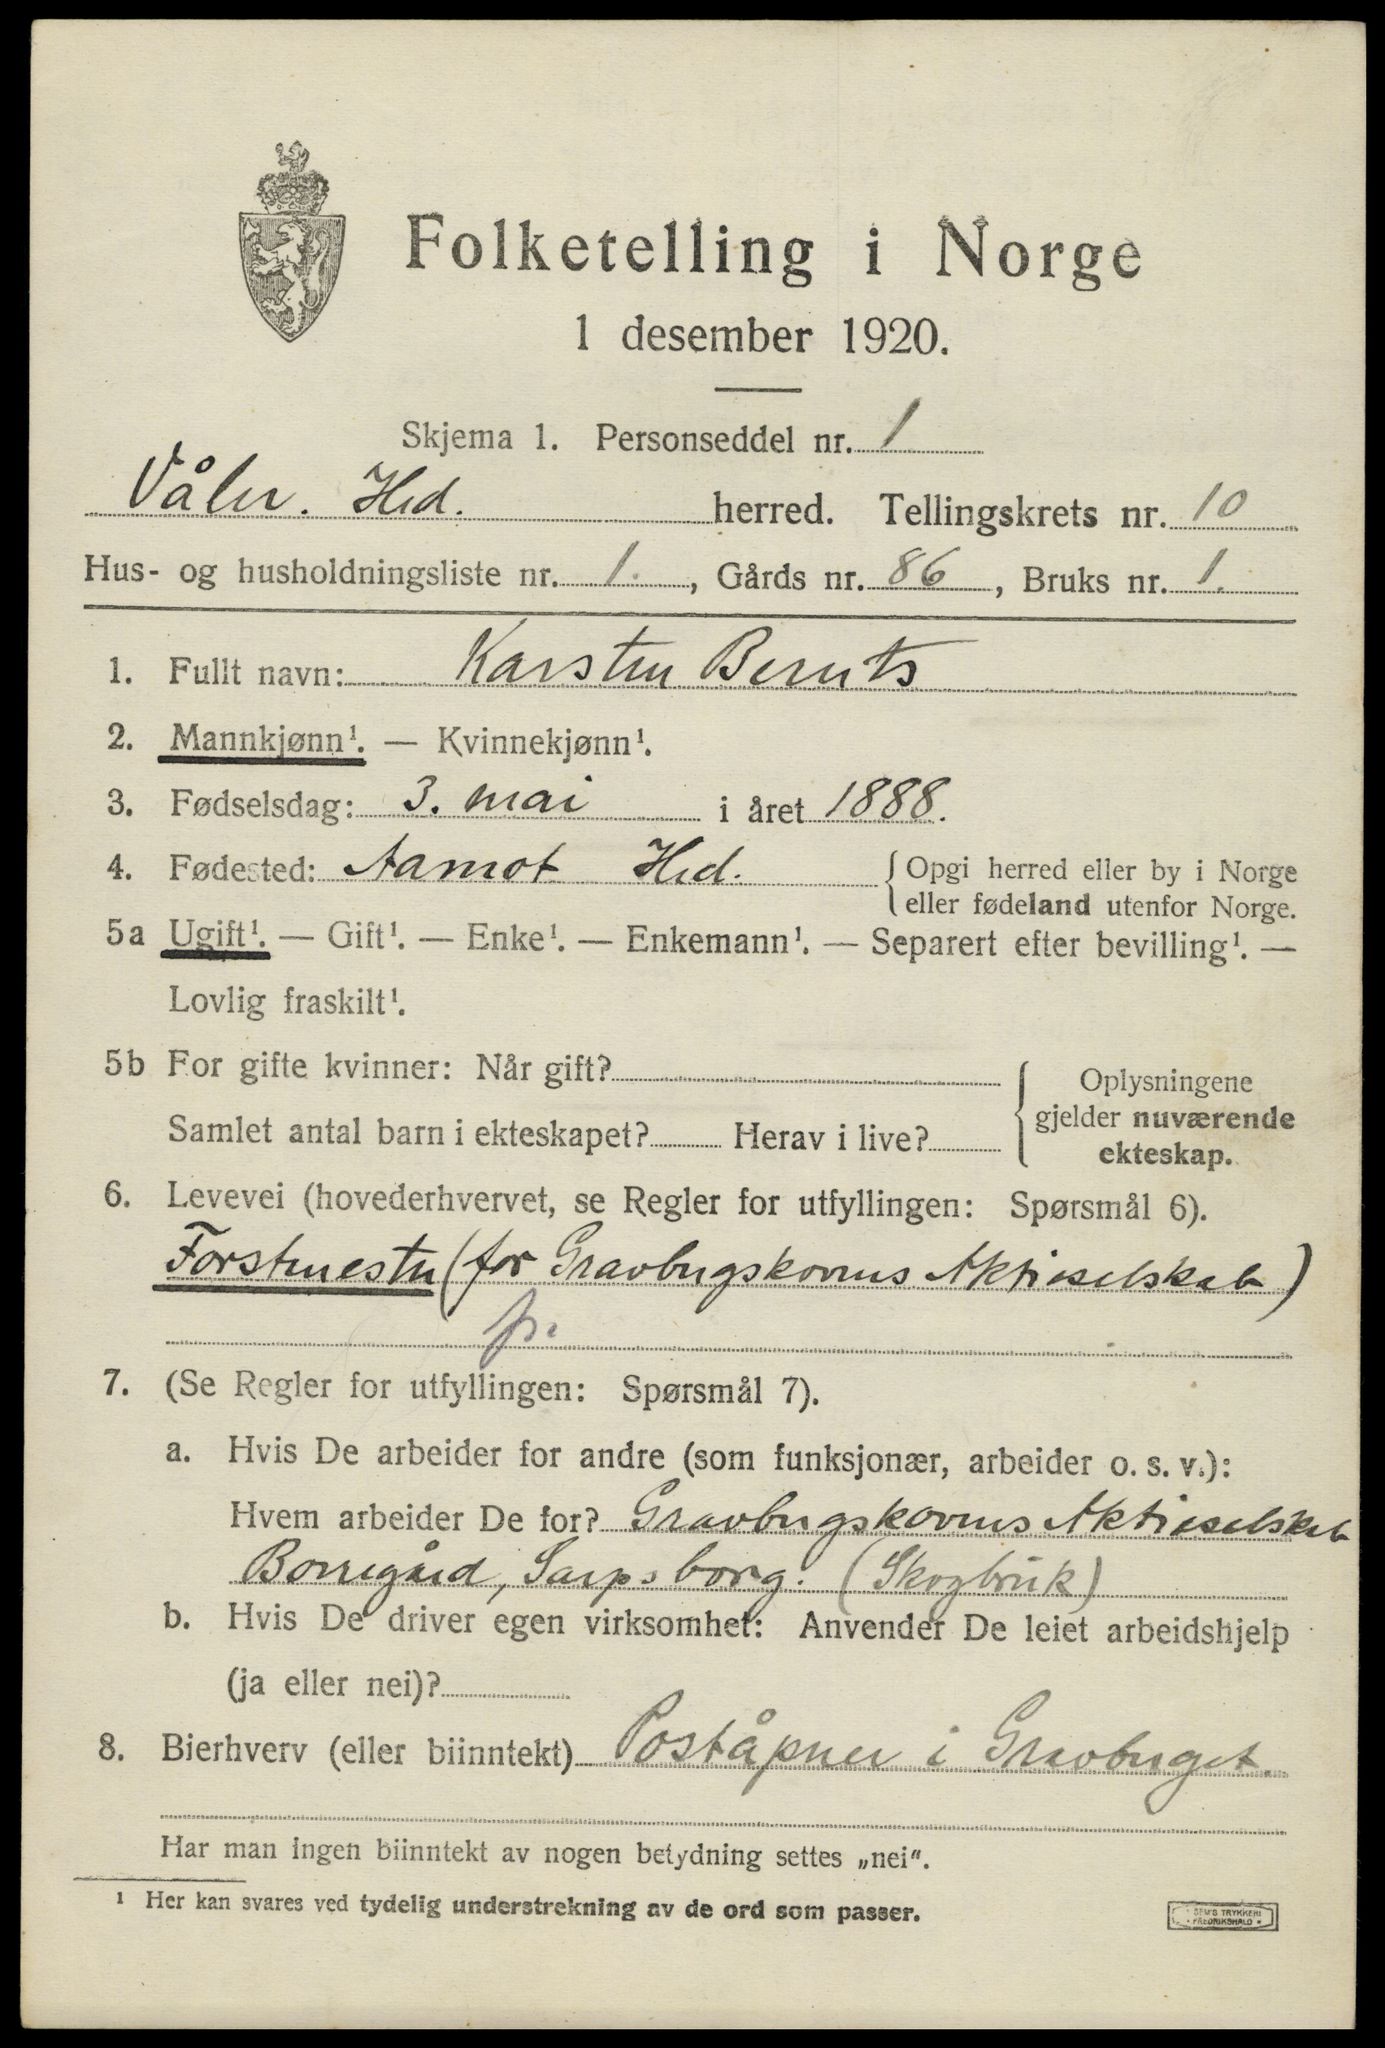 Folketelling i Norge
1 desember 1920.
Skjema 1. Personseddel nr. 1
Våler. Hed. herred. Tellingskrets nr. 10
Hus- og husholdningsliste nr. 1., Gårds nr. 86, Bruks nr. 1.
1. Fullt navn: Karsten Bernts
2. Mannkjønn¹. — Kvinnekjønn¹.
3. Fødselsdag: 3. mai i året 1888.
4. Fødested: Aamot Hed. { Opgi herred eller by i Norge
eller fødeland utenfor Norge.
5a Ugift¹. — Gift¹. — Enke¹. — Enkemann¹. — Separert efter bevilling¹. —
Lovlig fraskilt¹.
5b For gifte kvinner: Når gift? { Oplysningene
gjelder nuværende
Samlet antal barn i ekteskapet? Herav i live?
ekteskap.
6. Levevei (hovederhvervet, se Regler for utfyllingen: Spørsmål 6).
Forstmester (for Gravbergskovens Aktieselskab)
p.
7. (Se Regler for utfyllingen: Spørsmål 7).
a. Hvis De arbeider for andre (som funksjonær, arbeider o. s. v.):
Hvem arbeider De for? Gravbergskovens Aktieselskab
Borregård, Sarpsborg. (Skogbruk)
b. Hvis De driver egen virksomhet: Anvender De leiet arbeidshjelp
(ja eller nei)?
8. Bierhverv (eller biinntekt) Poståpner i Gravberget.
Har man ingen biinntekt av nogen betydning settes „nei".
¹ Her kan svares ved tydelig understrekning av de ord som passer.
SEM'S TRYKKERI
FREDRIKSHALD